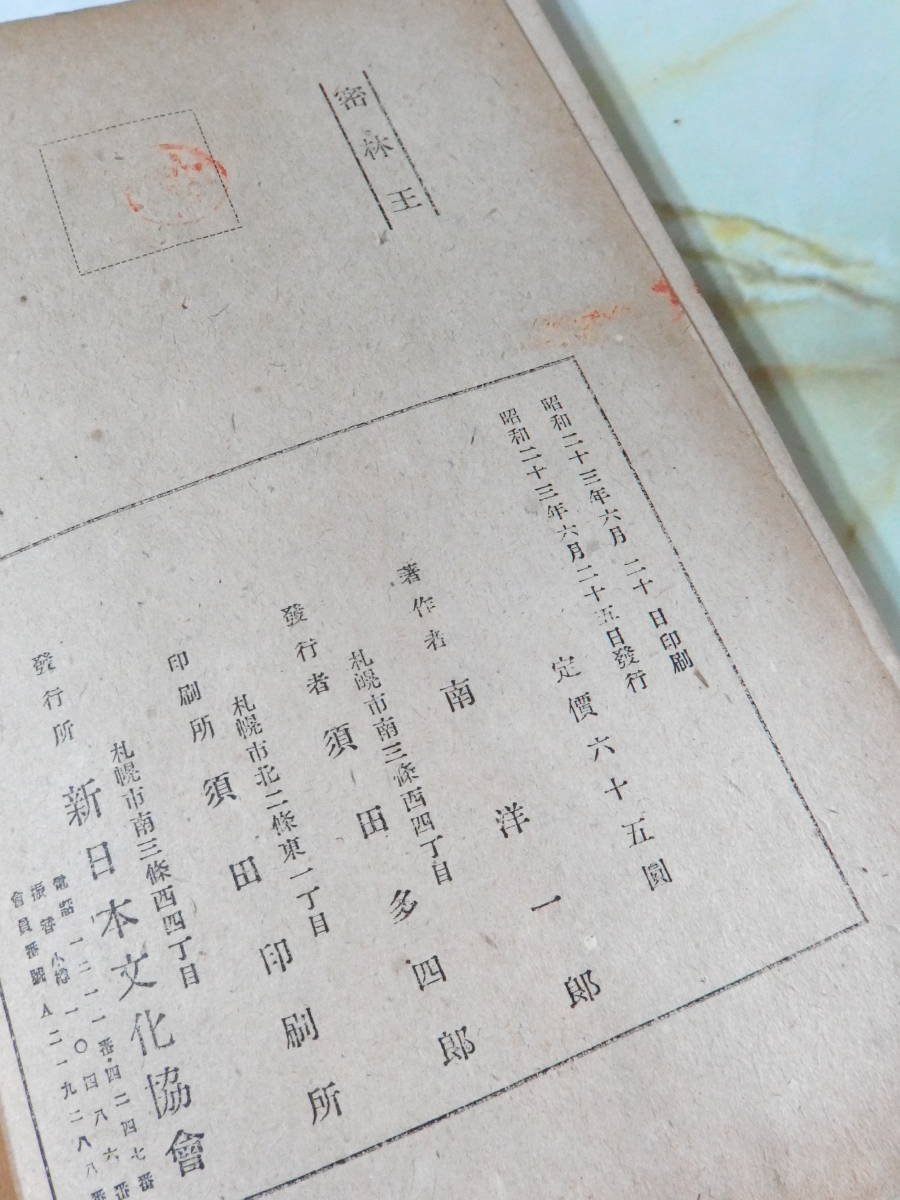 密林王
昭和二十三年六月二十日印刷
昭和二十三年六月二十五日發行
定價六十五圓
著作者 南洋一郎
札幌市南三條西四丁目
發行者 須田多四郎
札幌市北二條東一丁目
印刷所 須田印刷所
札幌市南三條西四丁目
發行所 新日本文化協會
電話 一二一一番・四二四七番
振替小樽一〇四八六番
會員番號 A二一九二八八